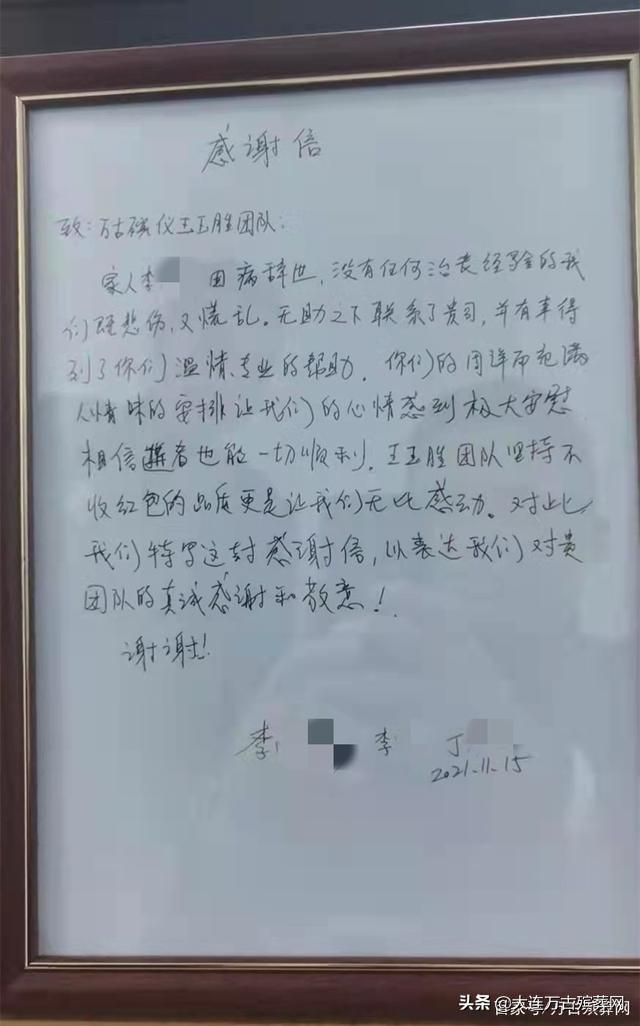 感谢信
致：万古殡仪王玉胜团队：
家人李 因病辞世，没有任何治丧经验的我
们既悲伤，又慌乱。无助之下联系了贵司，并有幸得
到了你们温情、专业的帮助．你们的周详而充满
人情味的安排让我们的心情感到极大安慰
相信逝者也能一切顺利．王玉胜团队坚持不
收红包的品质更是让我们无比感动。对此
我们特写这封感谢信，以表达我们对贵
团队的真诚感谢和敬意！
谢谢！
李 李 丁
2021.11.15
头条@大连万古殡葬网
百家号/万古殡葬网